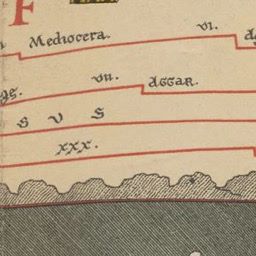 F
Mediocera. VI.
VII. AGGAR.
S V S
XXX.